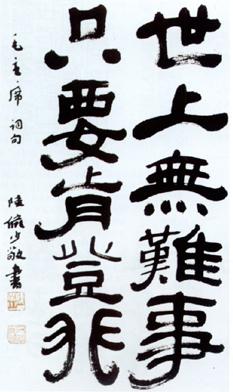 世上無難事
只要肯登攀
毛主席詞句
陸儼少敬書